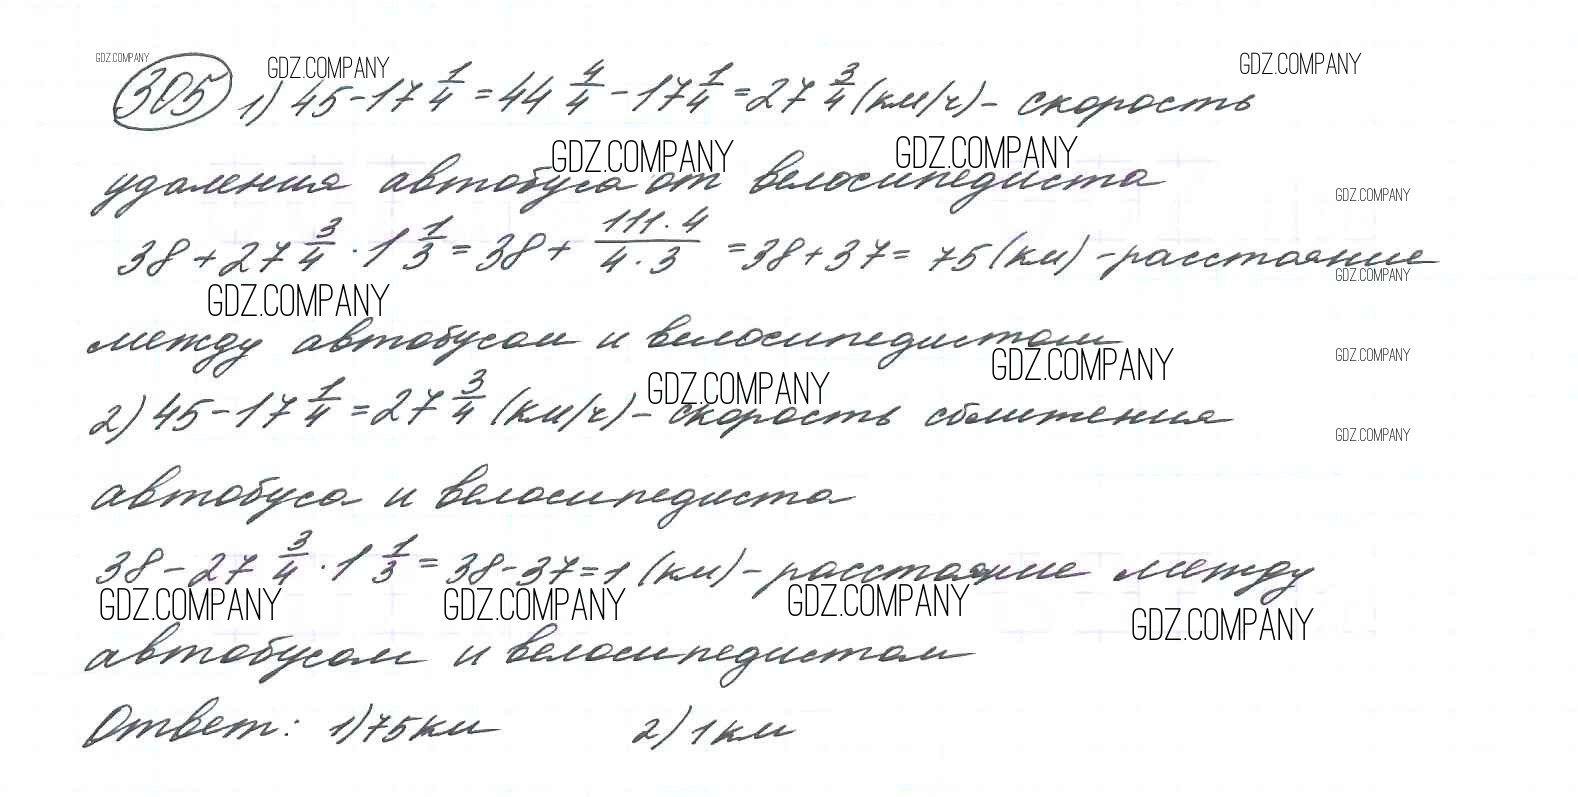 GDZ.COMPANY
305 1) 45 - 17 1/4 = 44 4/4 - 17 1/4 = 27 3/4 (км/ч) - скорость
GDZ.COMPANY GDZ.COMPANY
GDZ.COMPANY GDZ.COMPANY
удаления автобуса от велосипедиста
GDZ.COMPANY
38 + 27 3/4 · 1 1/3 = 38 + 111·4/4·3 = 38 + 37 = 75 (км) - расстояние
GDZ.COMPANY GDZ.COMPANY
между автобусом и велосипедистом
GDZ.COMPANY GDZ.COMPANY GDZ.COMPANY
2) 45 - 17 1/4 = 27 3/4 (км/ч) - скорость сближения
GDZ.COMPANY
автобуса и велосипедиста
38 - 27 3/4 · 1 1/3 = 38 - 37 = 1 (км) - расстояние между
GDZ.COMPANY GDZ.COMPANY GDZ.COMPANY GDZ.COMPANY
автобусом и велосипедистом
Ответ: 1) 75 км 2) 1 км